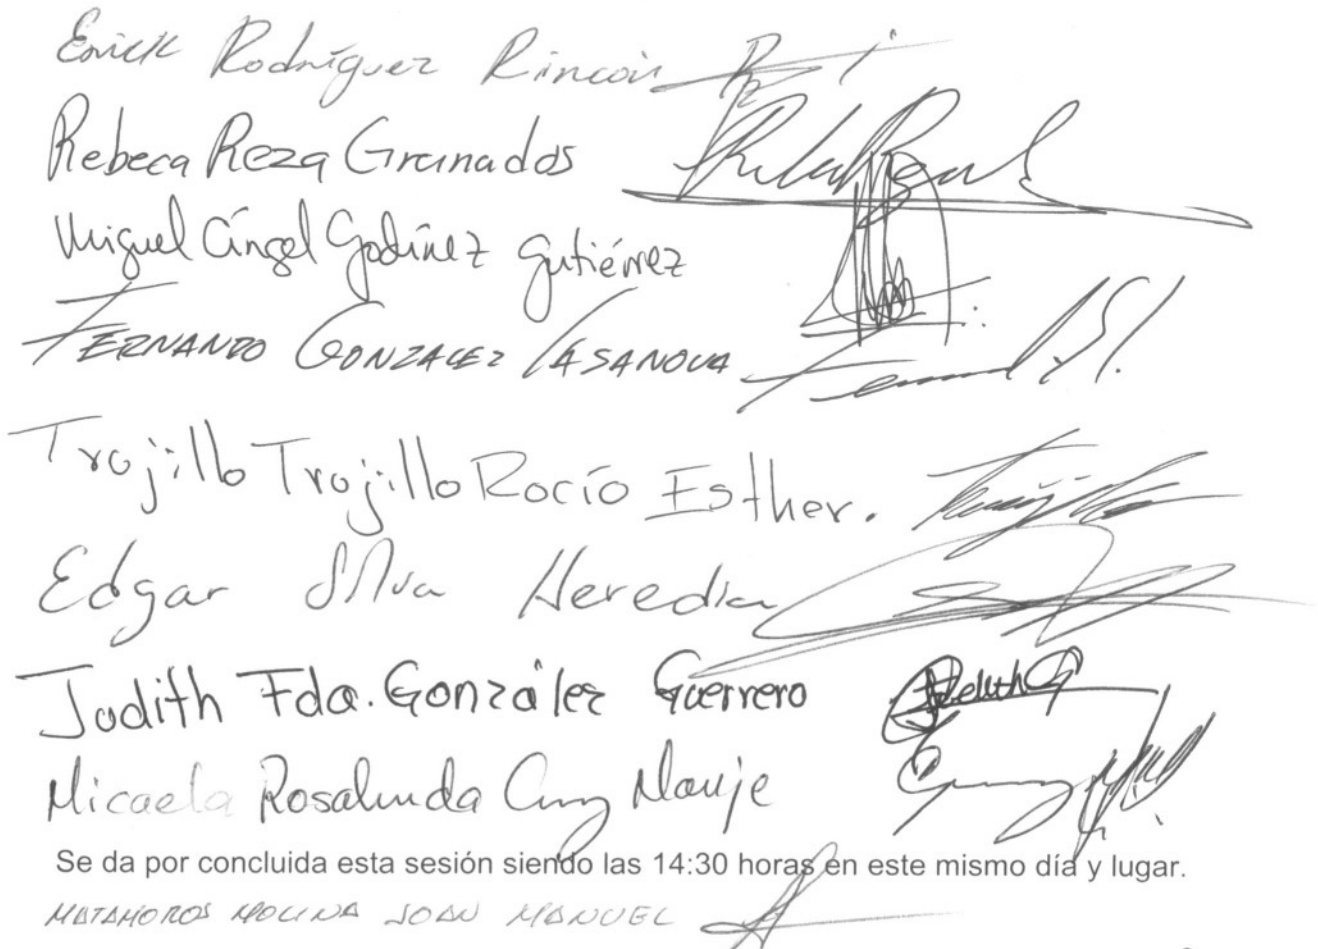 Erick Rodríguez Rincón
Rebeca Reza Granados
Miguel Ángel Godínez Gutiérrez
FERNANDO GONZALEZ CASANOVA
Trujillo Trujillo Rocío Esther.
Edgar Silva Heredia
Judith Fda. González Guerrero
Micaela Rosalinda Cruz
Se da por concluida esta sesión siendo las 14:30 horas en este mismo día y lugar.
MATAMOROS MOLINA JOAN MANUEL